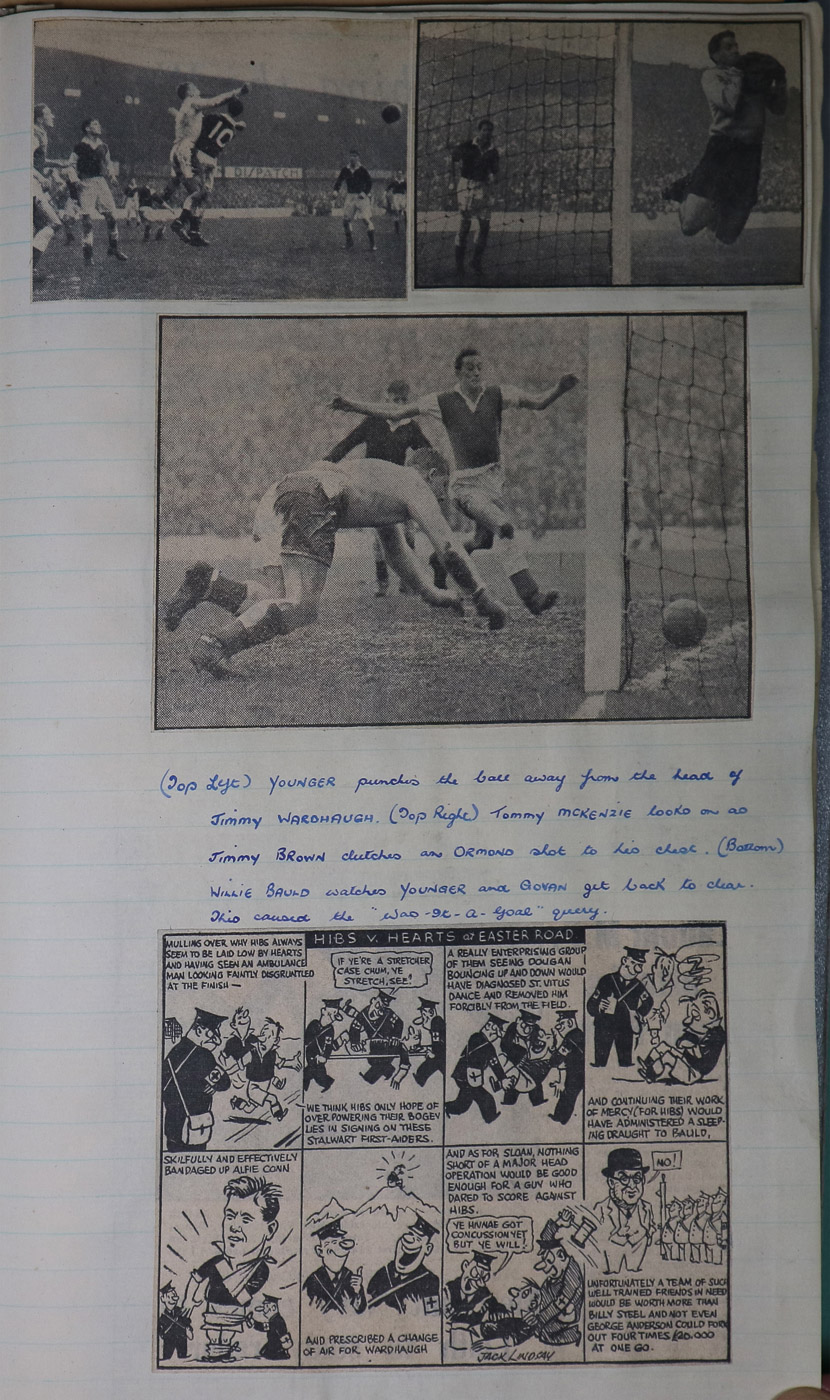 10
DISPATCH
(Top Left) YOUNGER punches the ball away from the head of
Jimmy WARDHAUGH. (Top Right) Tommy MCKENZIE looks on as
Jimmy BROWN clutches an ORMOND shot to his chest. (Bottom)
WILLIE BAULD watches YOUNGER and GOVAN get back to clear.
This caused the "Was-It-A-Goal" query.
HIBS V. HEARTS at EASTER ROAD
MULLING OVER WHY HIBS ALWAYS
SEEM TO BE LAID LOW BY HEARTS
AND HAVING SEEN AN AMBULANCE
MAN LOOKING FAINTLY DISGRUNTLED
AT THE FINISH —
IF YE'RE A STRETCHER
CASE CHUM, YE
STRETCH, SEE!
WE THINK HIBS ONLY HOPE OF
OVERPOWERING THEIR BOGEY
LIES IN SIGNING ON THESE
STALWART FIRST-AIDERS.
A REALLY ENTERPRISING GROUP
OF THEM SEEING DOUGAN
BOUNCING UP AND DOWN WOULD
HAVE DIAGNOSED ST. VITUS
DANCE AND REMOVED HIM
FORCIBLY FROM THE FIELD.
AND CONTINUING THEIR WORK
OF MERCY (FOR HIBS) WOULD
HAVE ADMINISTERED A SLEEP-
ING DRAUGHT TO BAULD,
SKILFULLY AND EFFECTIVELY
BANDAGED UP ALFIE CONN
AND PRESCRIBED A CHANGE
OF AIR FOR WARDHAUGH
AND AS FOR SLOAN, NOTHING
SHORT OF A MAJOR HEAD
OPERATION WOULD BE GOOD
ENOUGH FOR A GUY WHO
DARED TO SCORE AGAINST
HIBS.
YE HIVNAE GOT
CONCUSSION YET
BUT YE WILL!
JACK LINDSAY
NO!
UNFORTUNATELY A TEAM OF SUCH
WELL TRAINED FRIENDS IN NEED
WOULD BE WORTH MORE THAN
BILLY STEEL AND NOT EVEN
GEORGE ANDERSON COULD FORK
OUT FOUR TIMES £20,000
AT ONE GO.